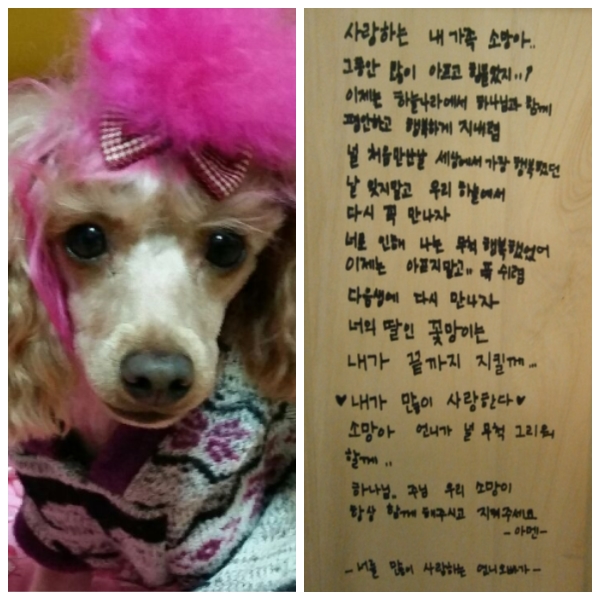 사랑하는 내 가족 소망아..
그동안 많이 아프고 힘들었지..?
이제는 하늘나라에서 하나님과 함께
평안하고 행복하게 지내렴
널 처음만난날 세상에서 가장 행복했던
날 잊지말고 우리 하늘에서
다시 꼭 만나자
너로 인해 나는 무척 행복했었어
이제는 아프지말고.. 푹 쉬렴
다음생에 다시 만나자
너의 딸인 꽃망이는
내가 끝까지 지킬께...
♥내가 많이 사랑한다♥
소망아 언니가 널 무척 그리워
할께..
하나님. 주님 우리 소망이
항상 함께 해주시고 지켜주세요
-아멘-
-너를 많이 사랑하는 언니오빠가-